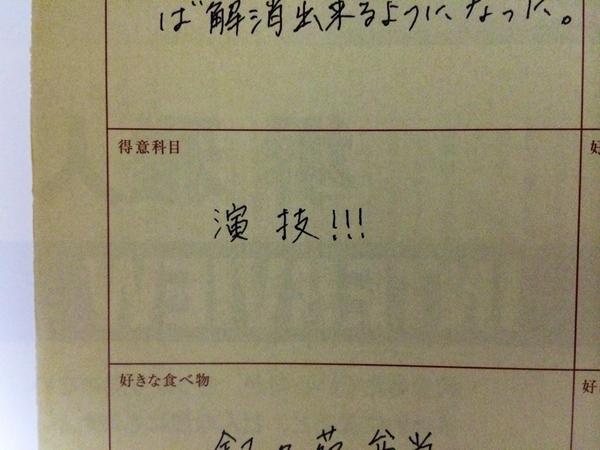 ば解消出来るようになった。
得意科目
好
演技!!!
好きな食べ物
好
弁当